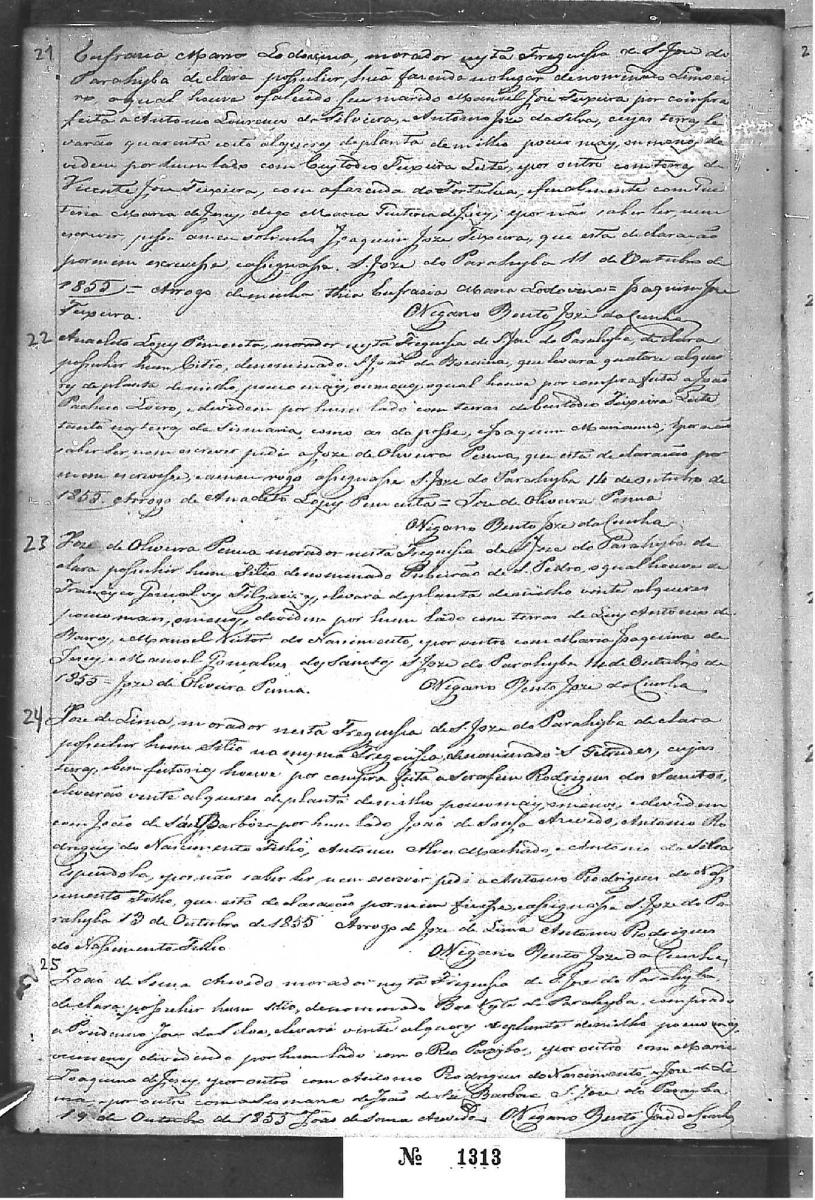 21
Eufrazia Maria Lodovina, morador nesta Freguesia de S. Joze do
Parahyba declara possuhir, sua fazenda no lugar denominado Limoei
ro a qual houve o falecido seu marido Manoel Joze Teixeira, por compra
feita a Antonio Lourenço da Silveira, e Antonio Joze da Silva, cujas terras le
varão quarenta e oito alqueres de planta de milho pouco mais, ou menos, de
videm por hum lado com Custodio Teixeira Leite, e por outro com terras de
Vicente Joze Teixeira, com a fazenda da Fortaleza, e finalmente com Qui
teria Maria de Jesus, digo Maria Quiteria de Jesus; e por não saber ler, nem
escrever, pedi a meu sobrinho Joaquim Joze Teixeira, que esta declaração
por mim escrevesse, e assignasse. S. Joze do Parahyba 11 de Outubro de
1855 = Arrogo de minha thia Eufrazia Maria Lodovina = Joaquim Joze
Teixeira. O Vigario Bento Joze da Cunha
22
Anacleto Lopes Pimenta, morador nesta Freguesia de S. Joze do Parahyba, declara
possuhir hum Citio, denominado S. João da, que levara quatorze alque
res de planta de milho, pouco mais, ou menos, o qual houve por compra feita a João
Pacheco, e devidem por hum lado com terras de Custodio Teixeira Leite
tanto nas terras da Sismaria, como as da posse, e Joaquim Marianno, e por não
saber ler nem escrever pedi a Joze de Oliveira Penna, que esta declaração por
mim escrevesse, e a meu rogo assignasse S. Joze do Parahyba 14 de Outubro de
1855. Arrogo de Anacleto Lopes Pimenta = Joze de Oliveira Penna
O Vigario Bento Joze da Cunha
23
Joze de Oliveira Penna morador nesta Freguesia de S. Joze do Parahyba de
clara possuhir hum Sitio denominado Ribeirão de S. Pedro, o qual houve de
Francisco Gonçalves Filgueiras, e levará de planta de milho vinte alqueres
pouco mais, o menos, devidem por hum lado com terras de Luis Antonio de
Barros, e Manoel Victor do Nascimento, e por outro com Maria Joaquina de
Jesus, e Manoel Gonçalves dos Santos S. Joze do Parahyba 14 de Outubro de
1855 = Joze de Oliveira Penna. O Vigario Bento Joze da Cunha
24
Joze de Lima, morador nesta Freguesia de S. Joze do Parahyba declara
possuhir hum Sitio na mesma Freguesia, denominado S., cujas
terras, e bemfeitorias, houve por compra feita a Serafim Rodrigues dos Santos,
e levarão vinte alqueres de planta de milho pouco mais, o menos, e devidem
com João de Sá Barbosa por hum lado João de Souza Azevedo, Antonio Ro
drigues do Nascimento Filho, Antonio Alves Machado, e Antonio da Silva
Espindola, e por não saber ler, nem escrever pedi a Antonio Rodrigues do Nas
cimento Filho, que esta declaração por mim fizesse, e assignasse S. Joze do Pa
rahyba 13 de Outubro de 1855 Arrogo de Joze de Lima Antonio Rodrigues
do Nascimento Filho O Vigario Bento Joze da Cunha
25
João de Souza Azevedo morador nesta Freguesia de S. Joze do Parahyba
declara possuhir hum sitio, denominado Boa Vista do Parahyba, comprado
a Prudencio Joze da Silva, e levará vinte alqueres de planta de milho pouco mais
ou menos dividindo por hum lado com o Rio Paraiba, e por outro com Maria
Joaquina de Jesus, e por outro com Antonio Rodrigues do Nascimento, e Joze de Li
ma, e por outro com a sesmaria de João de Sá Barbosa S. Joze do Parayba
14 de Outubro de 1855 João de Souza Azevedo O Vigario Bento Joze da Cunha
№ 1313